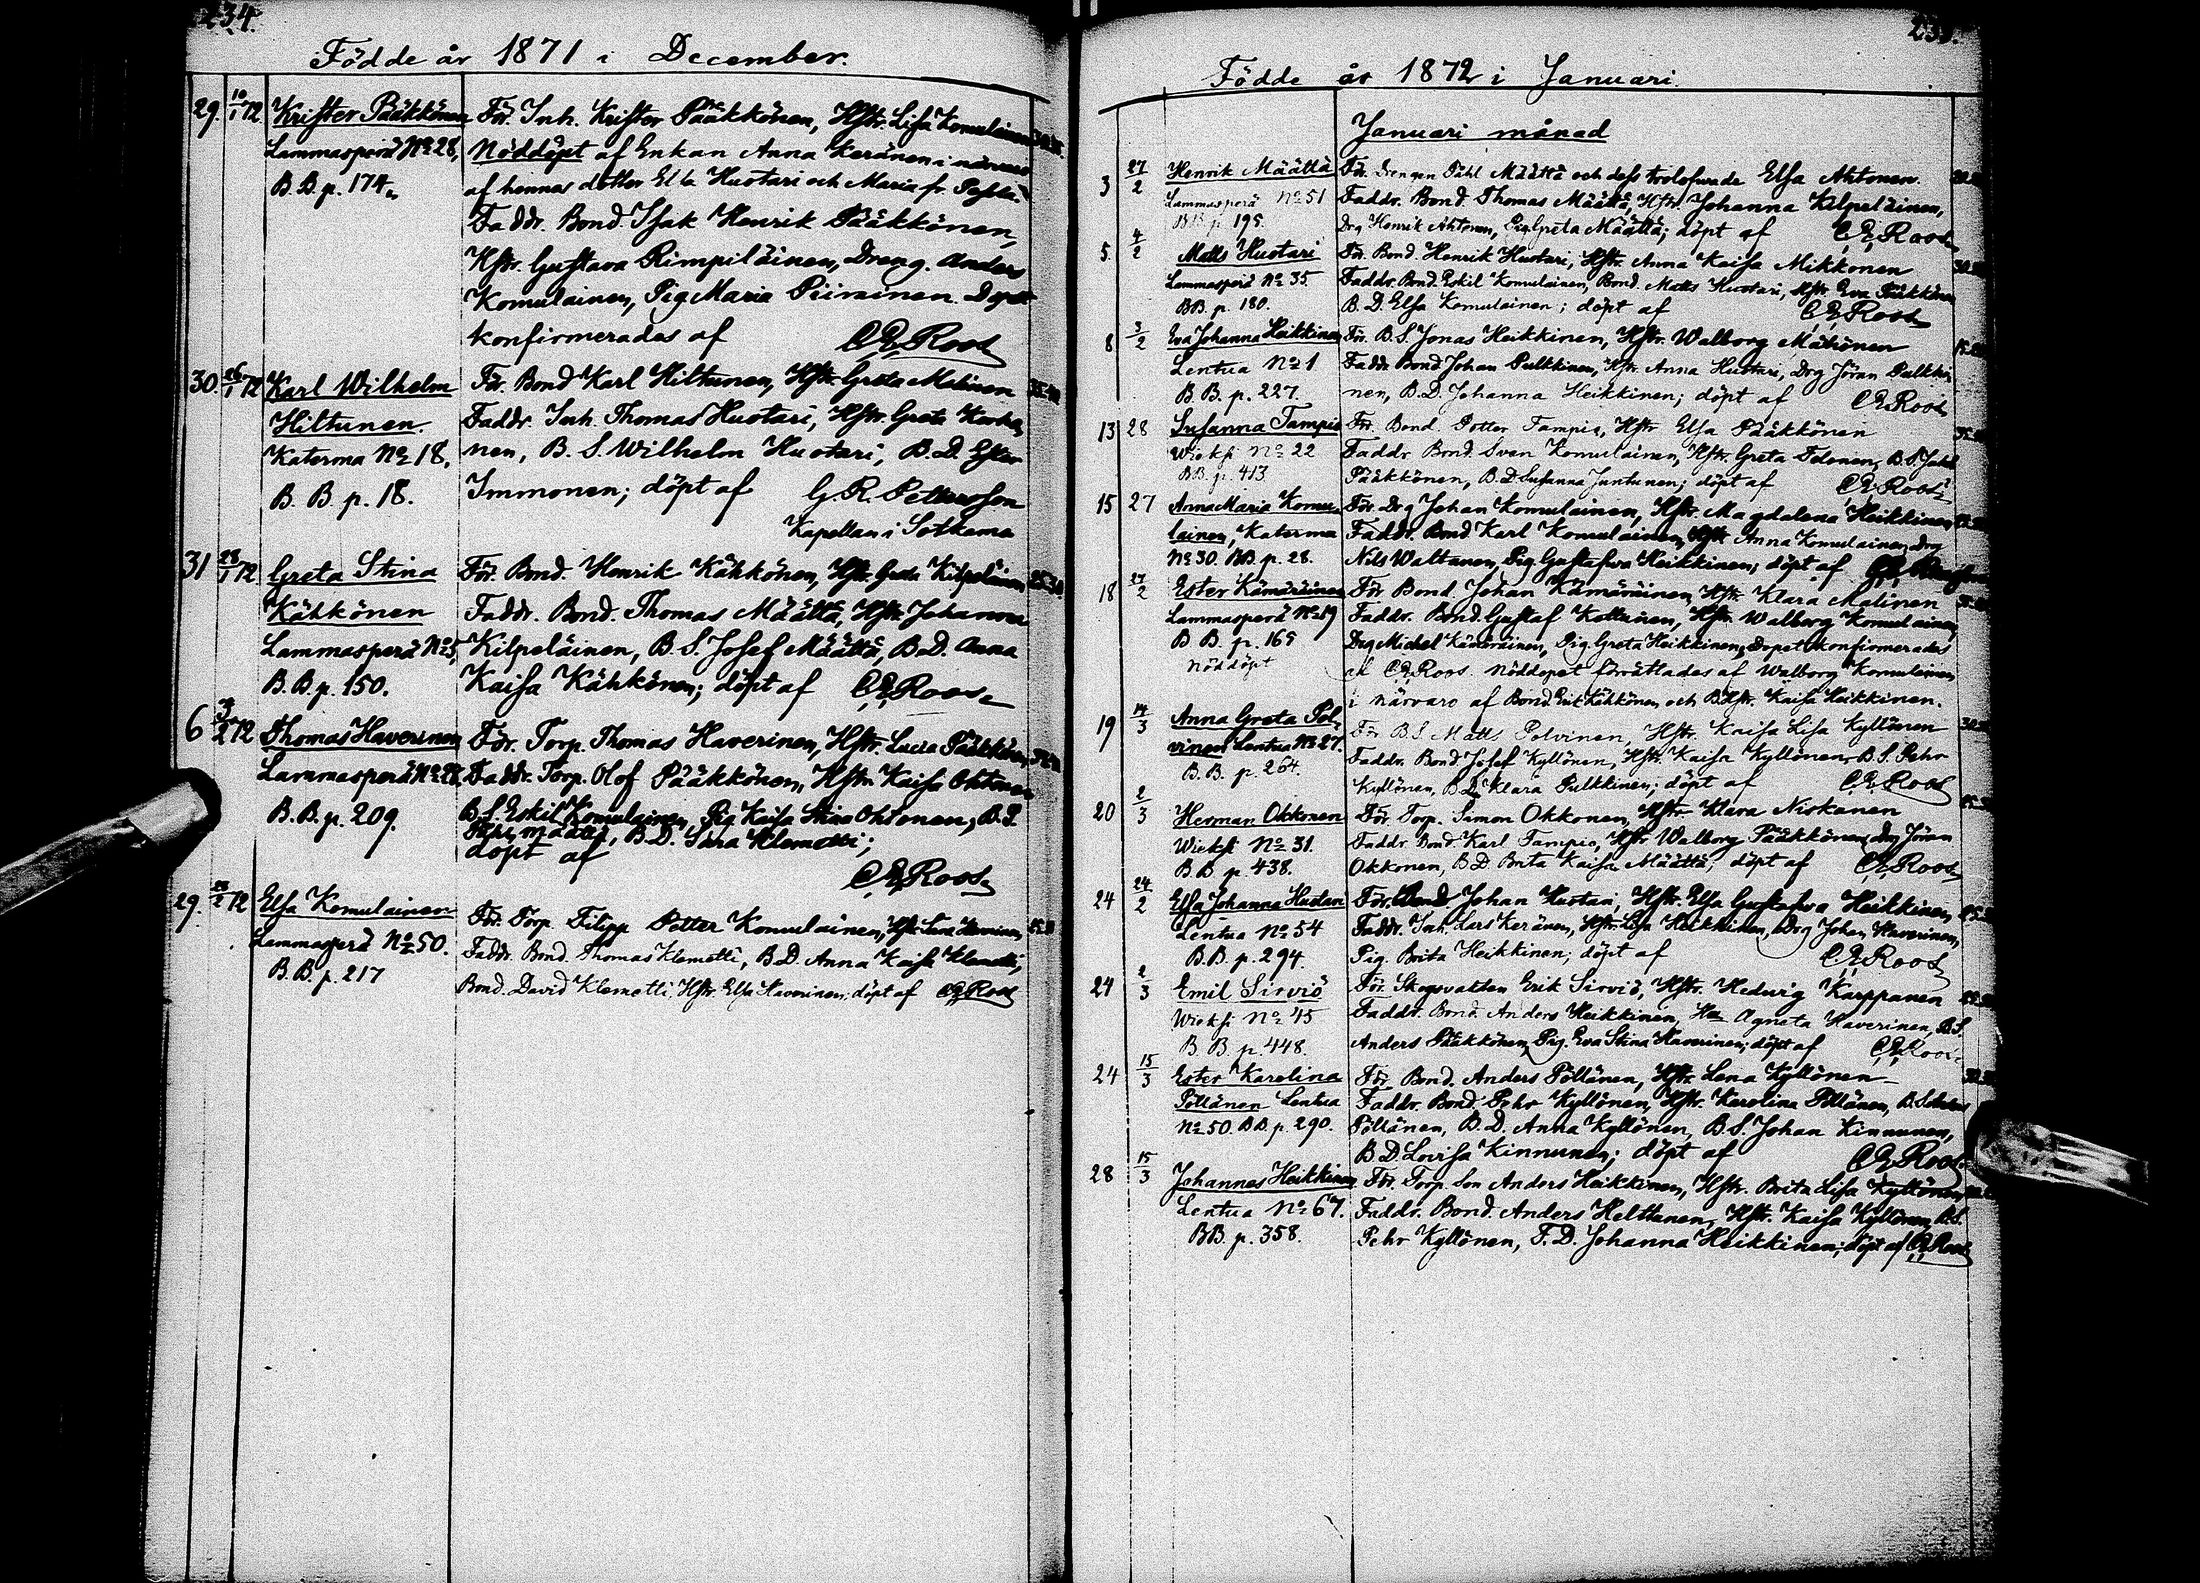 234.
Födde år 1871 i December.
29. 10/1 72 Krister Pääkkönen För. Inh. Krister Pääkkönen, Hstr. Lisa Komulainen
Lammasperä No 28, Nöddöpt af Enkan Anna Keränen i närvaro
B.B. p. 174. af hennes dotter Huotari och Maria
Faddr. Bond. Isak Henrik Pääkkönen,
Hstr. Gustava Rimpiläinen, Dreng. Anders
Komulainen, Pig Maria Piirainen. Dopet
konfirmerades af CERoos
30. 26/1 72 Karl Wilhelm För. Bond Karl Hiltunen, Hstr. Greta Malinen
Hiltunen. Faddr. Inh. Thomas Huotari, Hstr. Greta
Katerma No 18, nen, B.S. Wilhelm Huotari, B.D. Ester
B.B. p. 18. Immonen; döpt af G.R. Pettersson
Kapellan i Sotkamo
31 28/1 72 Greta Stina För. Bond. Henrik Kähkönen, Hstr. Greta Kilpeläinen
Kähkönen Faddr. Bond. Thomas Määttä, Hstr. Johanna
Lammasperä No 5, Kilpeläinen, B.S. Josef Määttä, B.D. Anna
B.B. p. 150. Kaisa Kähkönen; döpt af CERoos
6 3/2 72 Thomas Haverinen För. Torp. Thomas Haverinen, Hstr. Lucia Pääkkönen
Lammasperä No 28. Faddr. Torp. Olof Pääkkönen, Hstr. Kaisa Ohtonen
B.B. p. 209. B.S. Eskil Komulainen, Pig Kaisa Stina Ohtonen, B.S.
Pehr Määttä, B.D. Sara Klemetti;
döpt af
CERoos
29. 23/2 72 Elsa Komulainen För. Torp Filipp Petter Komulainen, Hstr. Haverinen
Lammasperä No 50. Faddr. Bond. Thomas Klemetti, B.D. Anna Kaisa Klemetti,
B.B. p. 217 Bond. David Klemetti, Hstr. Elsa Haverinen; döpt af CERoos
Födde år 1872 i Januari.
Januari månad
3 27/2 Henrik Määttä För. Drengen Påhl Määttä och dess trolofwade Elsa Ahtonen.
Lammasperä No 51 Faddr. Bond. Thomas Määttä, Hstr. Johanna Kilpeläinen,
B.B. p. 195. Drg Henrik Ahtonen, Pig Greta Määttä; döpt af CERoos
5 4/2 Matts Huotari För. Bond. Henrik Huotari, Hstr. Anna Kaisa Mikkonen
Lammasperä No 35. Faddr. Bond. Eskil Komulainen, Bond. Matts Huotari, Hstr. Eva Pääkkönen
BB. p. 180. B.D. Elsa Komulainen; döpt af CERoos
8 3/2 Eva Johanna Heikkinen För. B.S. Jonas Heikkinen, Hstr. Walborg Mähönen
Lentua No 1 Faddr. Bond Johan Pulkkinen, Hstr. Anna Huotari, Drg Jöran Pulkki-
B.B. p. 227. nen, B.D. Johanna Heikkinen; döpt af CERoos
13 28 Susanna Tampio För. Bond. Petter Tampio, Hstr. Elsa Pääkkönen
Wieksi No 22 Faddr. Bond. Sven Komulainen, Hstr. Greta Tolonen, B.S.
BB. p. 413. Pääkkönen, B.D. Susanna Juntunen; döpt af CERoos
15 27 Anna Maria Komu- För. Drg Johan Komulainen, Hstr. Magdalena Heikkinen
lainen, Katerma Faddr. Bond. Karl Komulainen, Hstr. Anna Komulainen, Drg
No 30. BB. p. 28. Nils Waltanen, Pig Gustafwa Heikkinen; döpt af
18 27/2 Ester Kämäräinen För Bond. Johan Kämäräinen, Hstr. Klara Malinen
Lammasperä No 19 Faddr. Bond. Gustaf Kettunen, Hstr. Walborg Komulainen,
B.B. p. 165 Drg Michel Kämäräinen, Pig Greta Heikkinen, Dopet konfirmerades
nöddöpt af CERoos. Nöddopet förrättades af Walborg Komulainen
i närvaro af Bond. Erik Kähkönen och B.Hstr. Kaisa Heikkinen.
19 14/3 Anna Greta Pol- För B.S. Matts Polvinen, Hstr. Kaisa Lisa Kyllönen
vinen Lentua No 27. Faddr. Bond Josef Kyllönen, Hstr. Kaisa Kyllönen, B.S. Pehr
B.B. p. 264. Kyllönen, B.D. Klara Pulkkinen; döpt af CERoos
20 2/3 Herman Okkonen För Torp. Simon Okkonen, Hstr. Klara Niskanen
Wieksi No 31. Faddr. Bond. Karl Tampio, Hstr. Walborg Pääkkönen, Drg Jöran
B.B. p. 438. Okkonen, B.D. Brita Kaisa Määttä; döpt af CERoos
24 24/2 Elsa Johanna Huotari För. Bond Johan Huotari, Hstr. Elsa Gustafwa Heikkinen
Lentua No 54 Faddr. Inh. Lars Keränen, Hstr. Lisa Heikkinen, Drg Johan Haverinen,
B.B. p. 294. Pig. Brita Heikkinen; döpt af CERoos
24 2/3 Emil Sirviö För. Skogsvakten Erik Sirviö, Hstr. Hedwig Karppanen
Wieksi No 45 Faddr. Bond. Anders Heikkinen, Agneta Haverinen, B.S.
B.B. p. 448. Anders Pääkkönen, Pig. Eva Stina Haverinen; döpt af CERoos
24 15/3 Ester Karolina För. Bond. Anders Pöllänen, Hstr. Lena Kyllönen
Pöllänen Lentua Faddr. Bond. Pehr Kyllönen, Hstr. Karolina Pöllänen, B.S.
No 50. BB. p. 290. Pöllänen, B.D. Anna Kyllönen, B.S. Johan Kinnunen,
B.D. Lovisa Kinnunen; döpt af CERoos
28 15/3 Johannes Heikkinen För. Torp. Son Anders Heikkinen, Hstr. Brita Lisa Kyllönen
Lentua No 67. Faddr. Bond. Anders Helttunen, Hstr. Kaisa Kyllönen, B.S.
BB. p. 358. Pehr Kyllönen, T.D. Johanna Heikkinen; döpt af CERoos